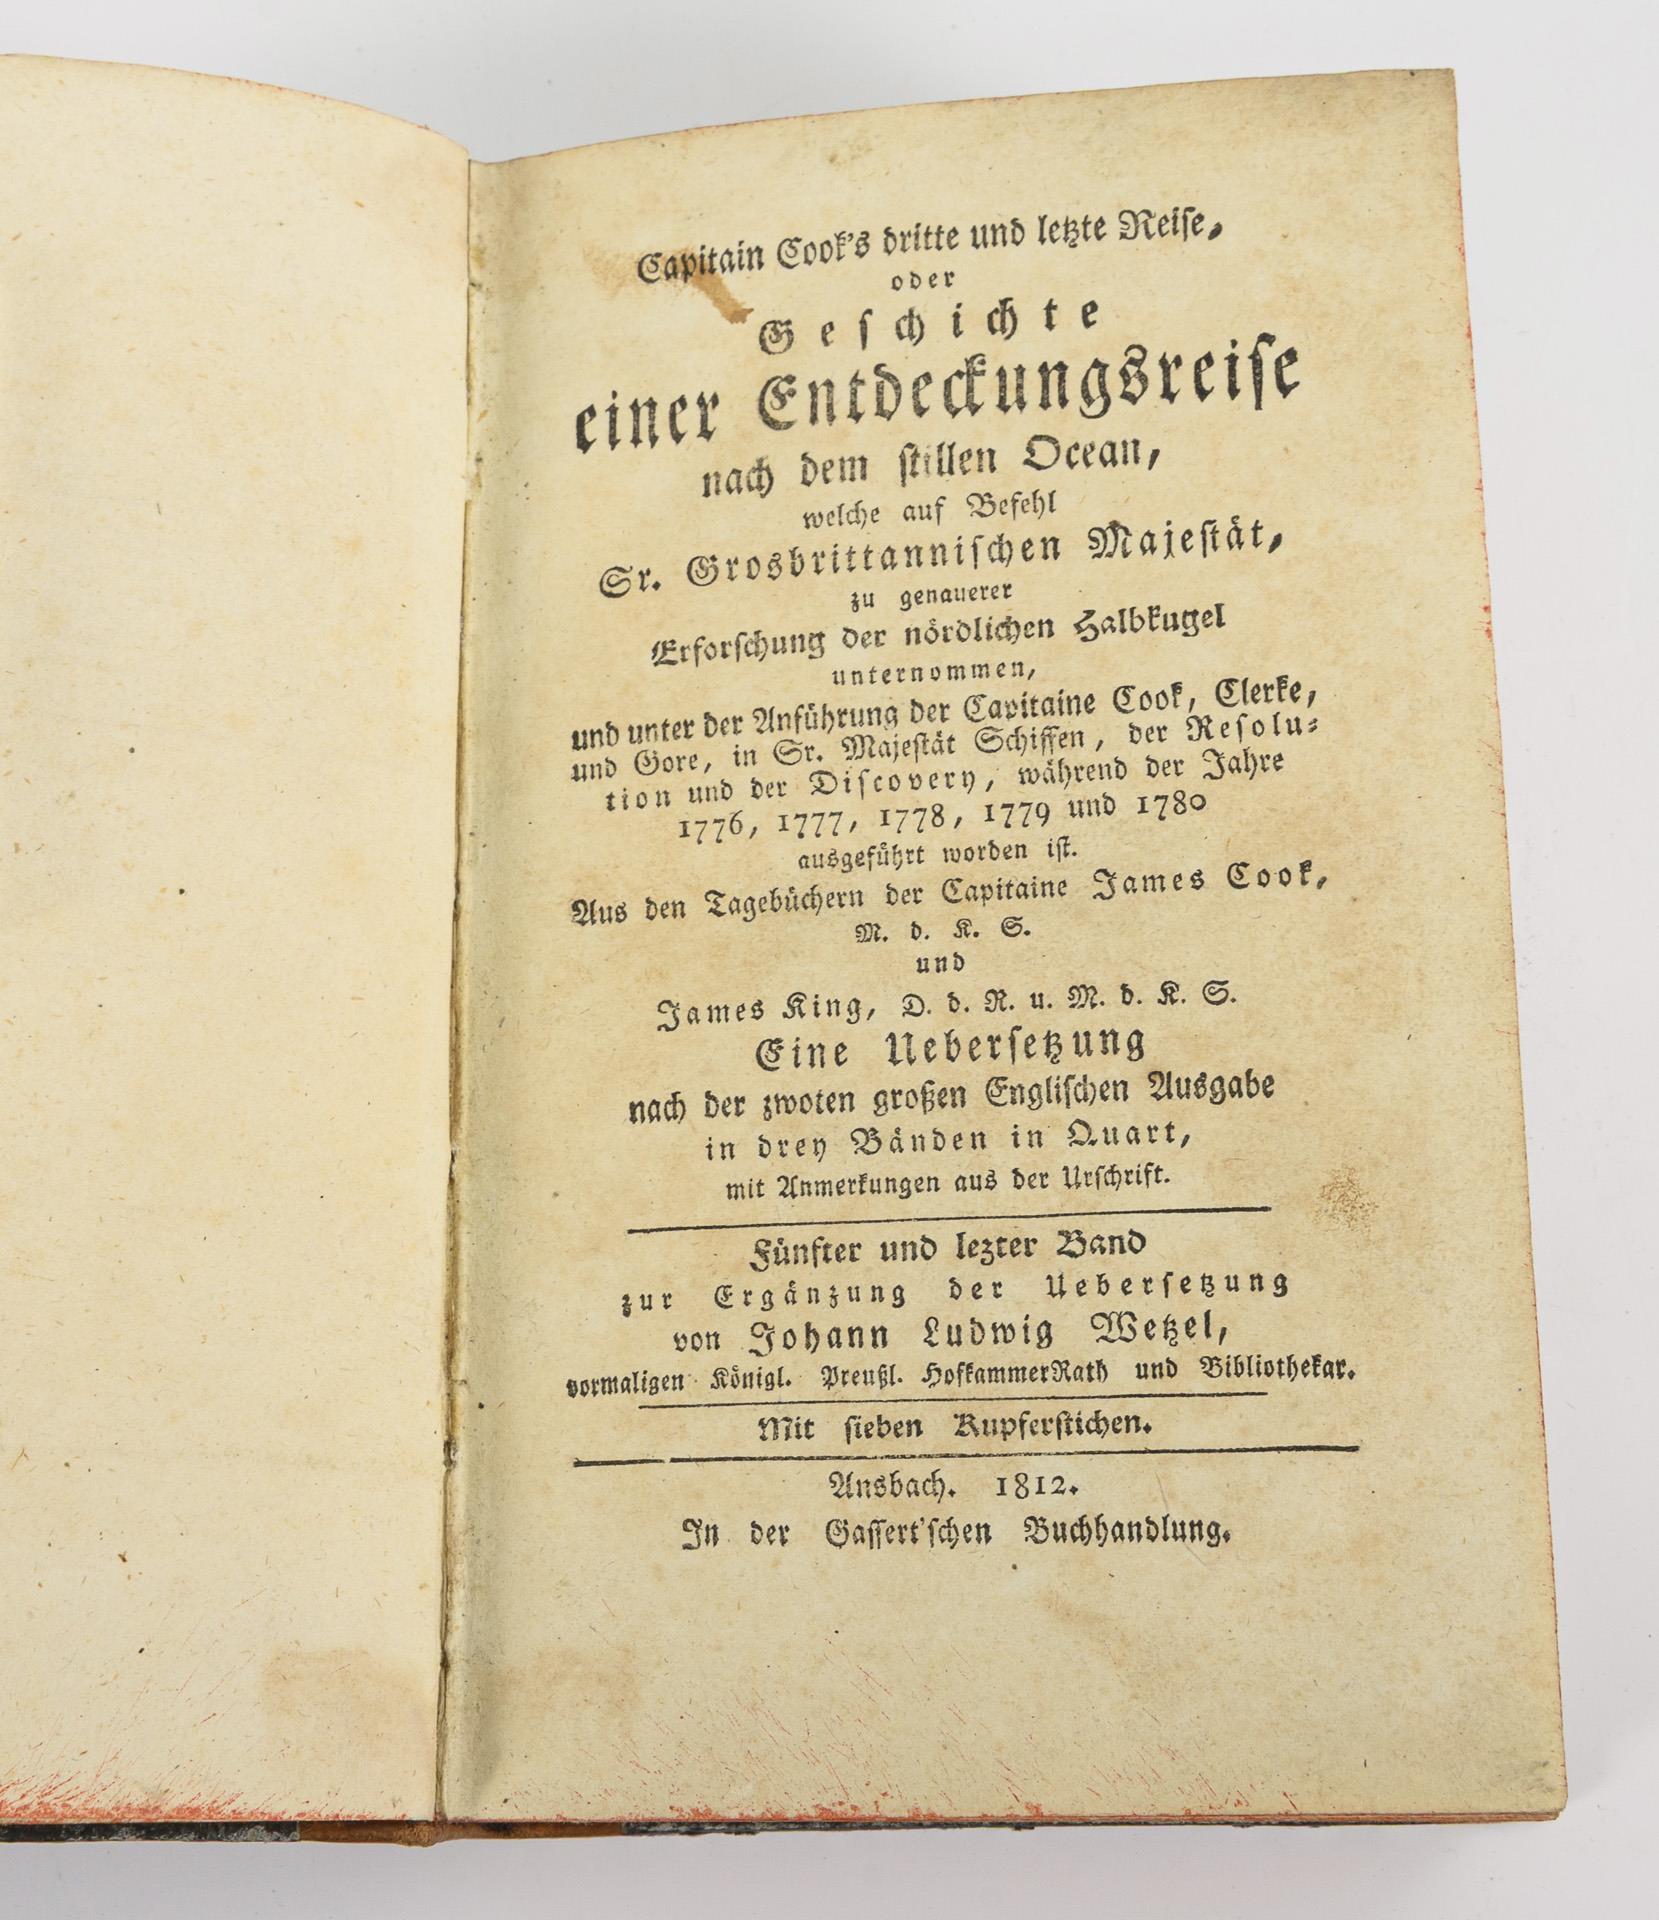 Capitain Cook's dritte und letzte Reise,
oder
Geschichte
einer Entdeckungsreise
nach dem stillen Ocean,
welche auf Befehl
Sr. Grosbrittannischen Majestät,
zu genauerer
Erforschung der nördlichen Halbkugel
unternommen,
und unter der Anführung der Capitaine Cook, Clerke,
und Gore, in Sr. Majestät Schiffen, der Resolu-
tion und der Discovery, während der Jahre
1776, 1777, 1778, 1779 und 1780
ausgeführt worden ist.
Aus den Tagebüchern der Capitaine James Cook,
M. d. K. S.
und
James King, D. d. R. u. M. d. K. S.
Eine Uebersetzung
nach der zwoten großen Englischen Ausgabe
in drey Bänden in Quart,
mit Anmerkungen aus der Urschrift.
Fünfter und lezter Band
zur Ergänzung der Uebersetzung
von Johann Ludwig Wetzel,
vormaligen Königl. Preußl. HofkammerRath und Bibliothekar.
Mit sieben Kupferstichen.
Ansbach. 1812.
In der Gassert'schen Buchhandlung.